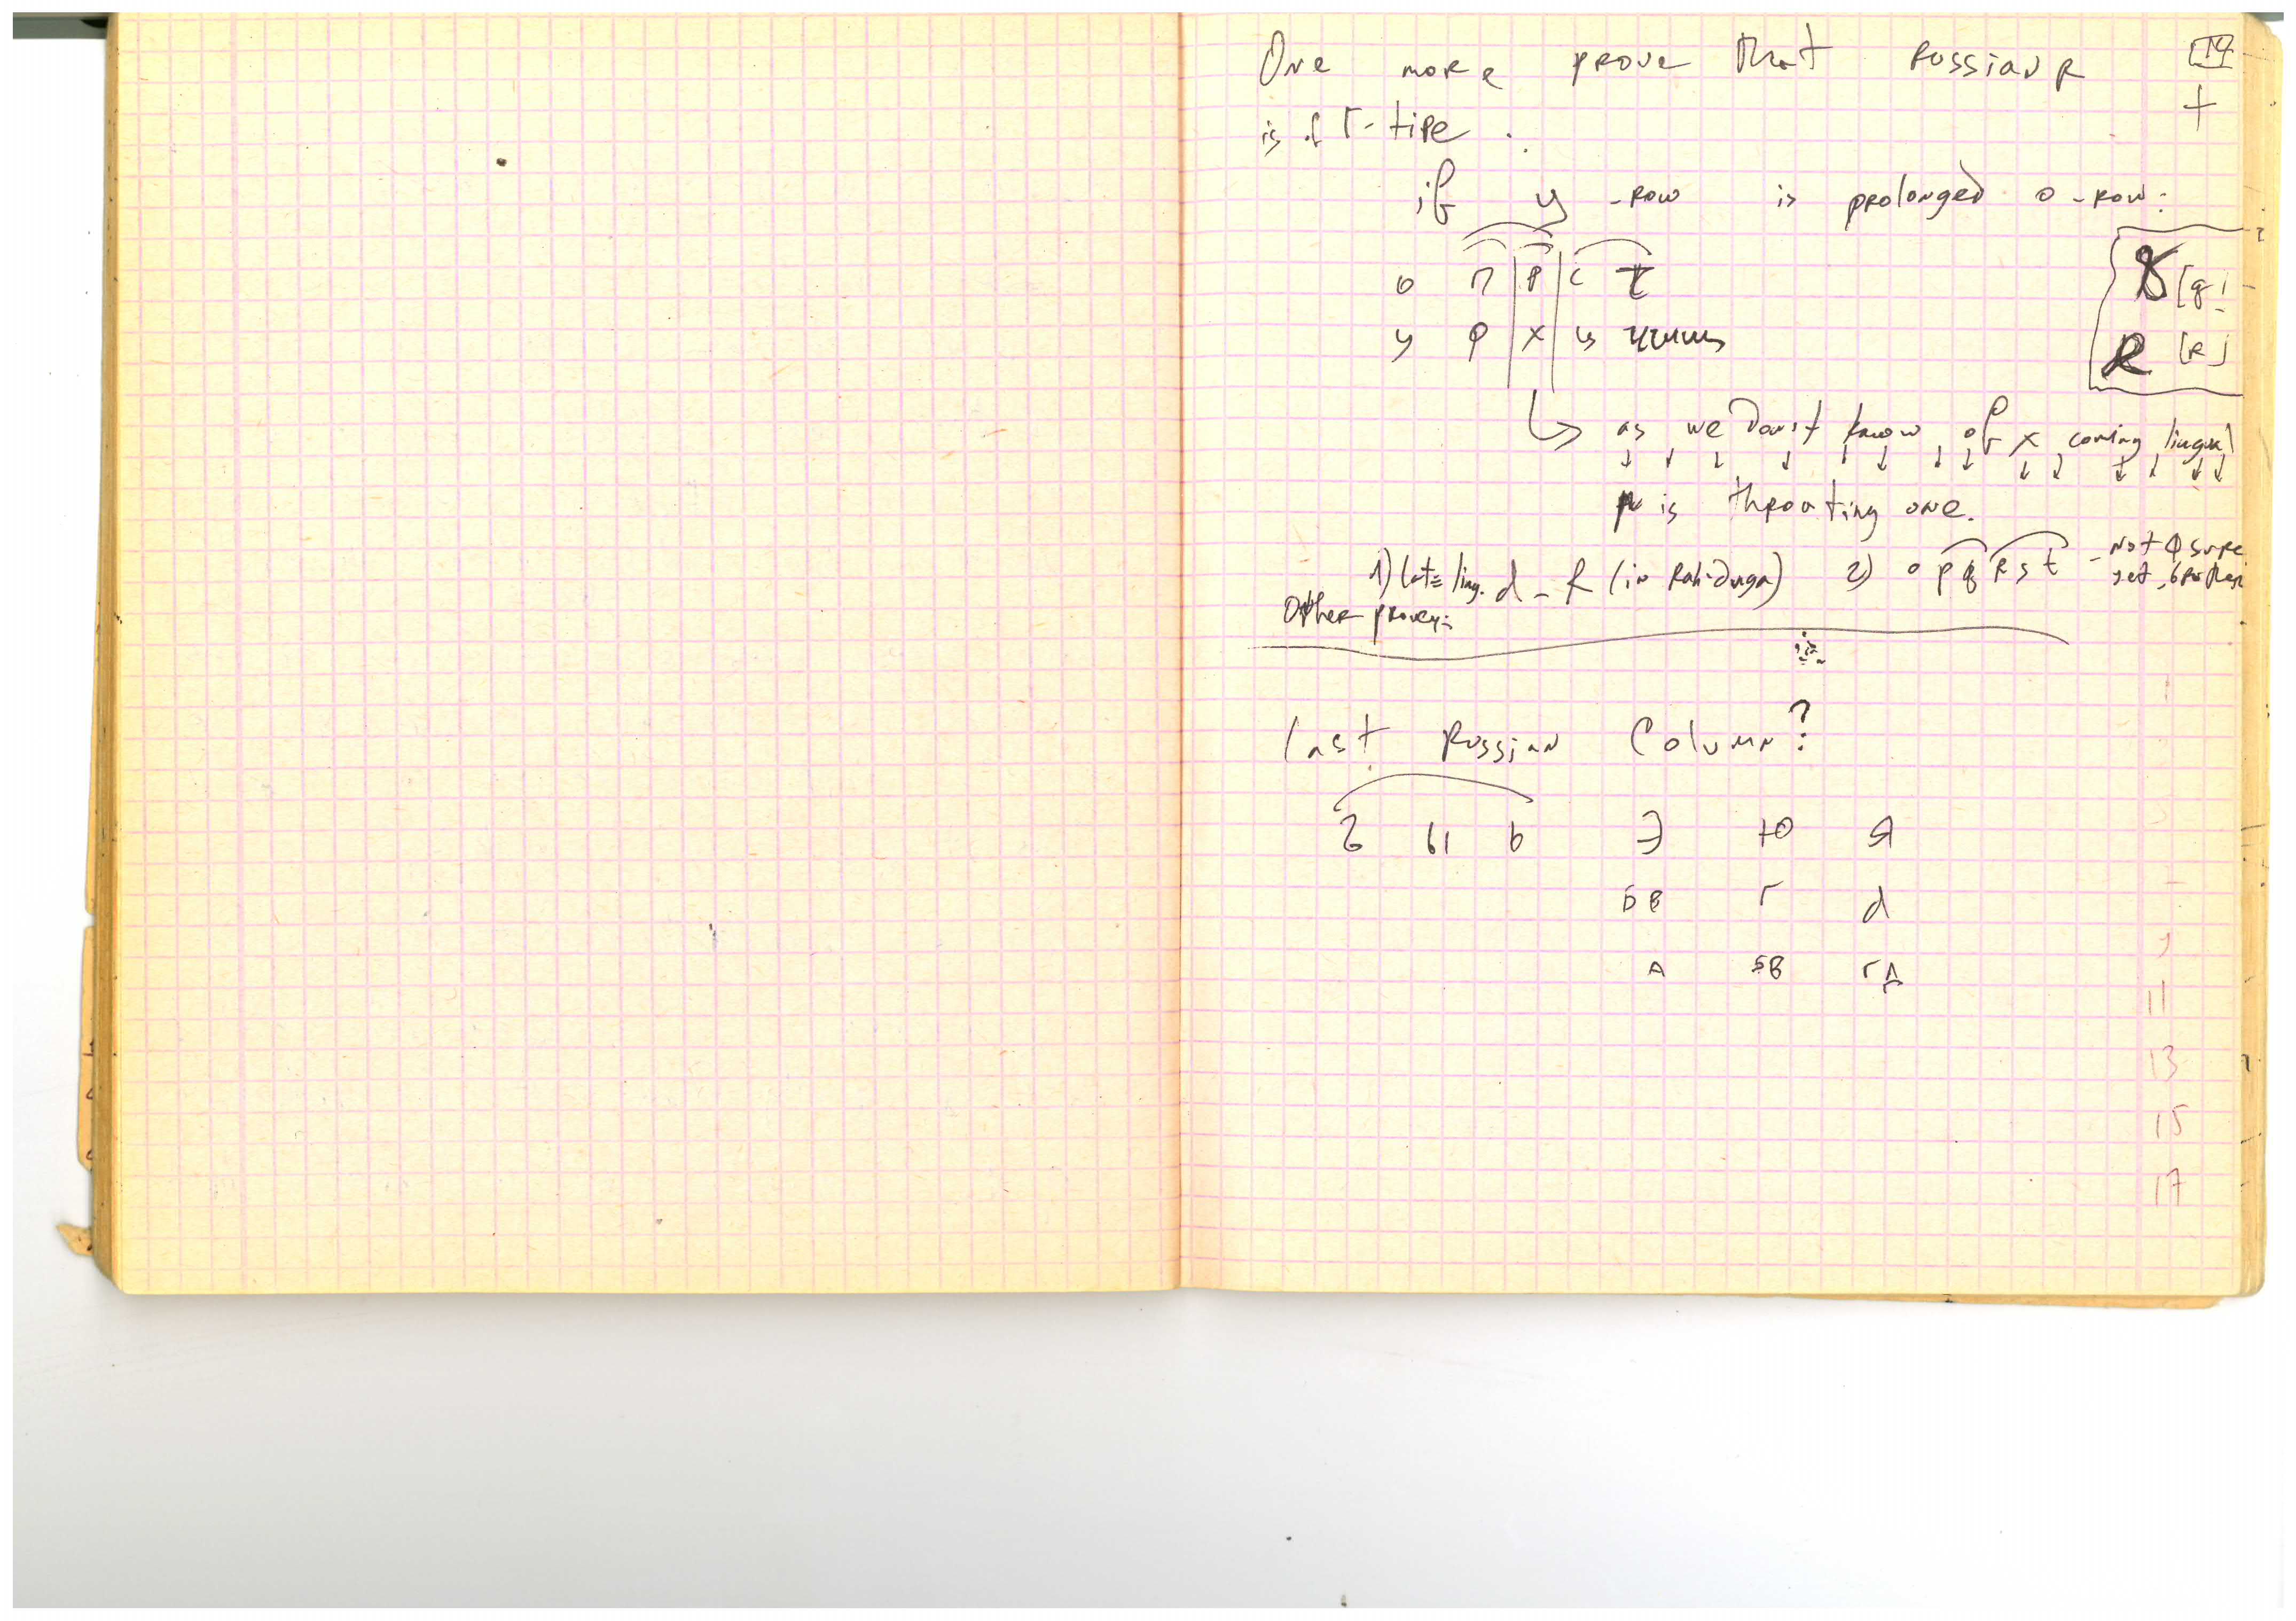 One more prove that Russian R 14
is of Г-tipe . +
if у -row is prolonged o -row:
о п р с т
у ф х ц чшщ
[g]
R [R]
as we don't know of x coming lingual
is throating one.
1) Lat= ling. d - R (in Rah-duga) 2) o p q R s t - not sure
Other proves:
Last Russian Column?
Ъ Ы Ь Э Ю Я
БВ Г d
А БВ ГД
11
13
15
17